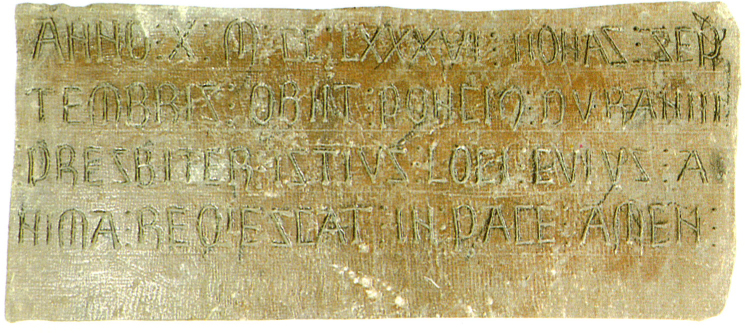 ANNO : X : M : CC : LXXXVI : NONAS : SEP
TEMBRIS : OBIIT : PONCIUS : DURANNI
PRESBITER : ISTIUS : LOCI : CUIUS : A
NIMA : REQIESCAT : IN : PACE : AMEN :